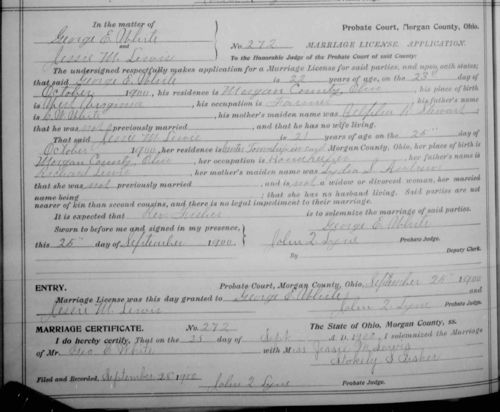 In the matter of
George E. White
and
Jessie M. Lewis
Probate Court, Morgan County, Ohio.
No. 272 MARRIAGE LICENSE APPLICATION.
To the Honorable Judge of the Probate Court of said County:
The undersigned respectfully makes application for a Marriage License for said parties, and upon oath states;
that said George E. White is 22 years of age, on the 23d day of
October 1900, his residence is Morgan County, Ohio, his place of birth
is West Virginia, his occupation is Farmer, his father's name
is White, his mother's maiden name was Stewart
that he was not previously married, and that he has no wife living.
That said Jessie M. Lewis is 21 years of age on the 25th day of
October 1900, her residence is Township Morgan County, Ohio, her place of birth is
Morgan County, Ohio, her occupation is Housekeeper, her father's name is
Richard Lewis, her mother's maiden name was Lydia Andrews
that she was not previously married, and is not a widow or divorced woman, her married
name being ; that she has no husband living. Said parties are not
nearer of kin than second cousins, and there is no legal impediment to their marriage.
It is expected that Rev Fisher is to solemnize the marriage of said parties.
Sworn to before me and signed in my presence, George E. White
this 25th day of September 1900. John Q. Lyne Probate Judge.
By Deputy Clerk.
Probate Court, Morgan County, Ohio, September 25th 1900
ENTRY.
Marriage License was this day granted to George E. White and
Jessie M. Lewis John Q. Lyne Probate Judge.
MARRIAGE CERTIFICATE. No. 272 The State of Ohio, Morgan County, ss.
I do hereby Certify, That on the 25 day of Sept A. D. 1900, I solemnized the Marriage
of Mr. Geo. E. White with Miss Jessie M. Lewis
Stokely S. Fisher
Filed and Recorded, September 25 1900 John Q. Lyne Probate Judge.